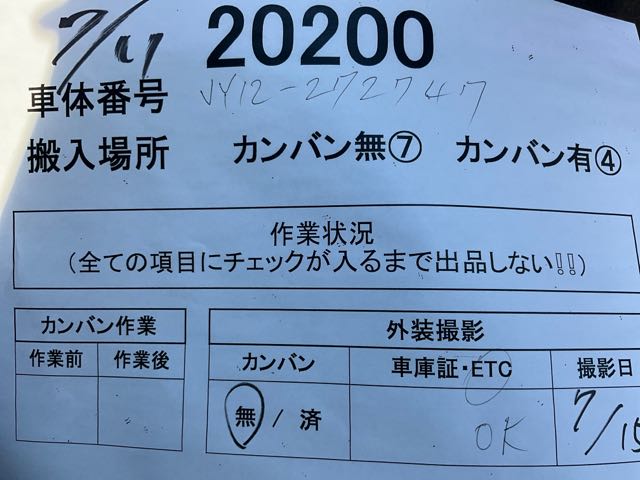 7/11 20200
車体番号 JY12-272747
搬入場所 カンバン無⑦ カンバン有④
作業状況
(全ての項目にチェックが入るまで出品しない!!)
カンバン作業 外装撮影
作業前 作業後 カンバン 車庫証・ETC 撮影日
無 / 済 OK 7/15